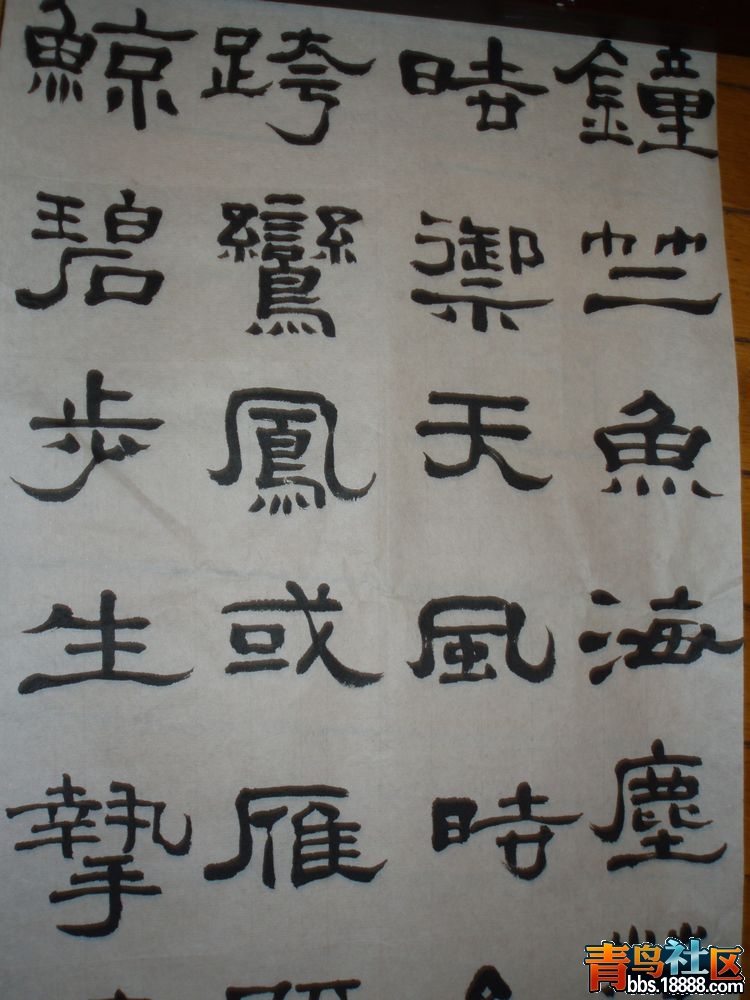 鐘竺魚海塵
時御天風時
跨鸞鳳或雁
鯨碧步生摯
青鸟社区
bbs.18888.com